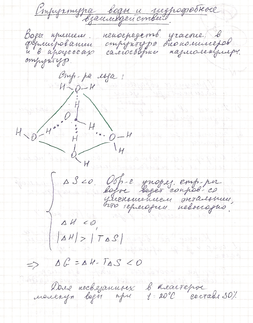 Структура воды и гидрофобные
взаимодействия
Вода приним. непосредств. участие в
формировании структуры биополимеров
и в процессах самосборки надмолекуляр.
структур.
Стр-ра льда:
H H
O
H O H
H O H
O
H H
ΔS<0. Обр-е упоряд. стр-ры
воды
уменьшением энтропии,
что невыгодно.
ΔH < 0
|ΔH| > |TΔS|
⇒ ΔG = ΔH - TΔS < 0
Доля несвязанных в кластеры
молекул воды при 1-20°C составл 30%